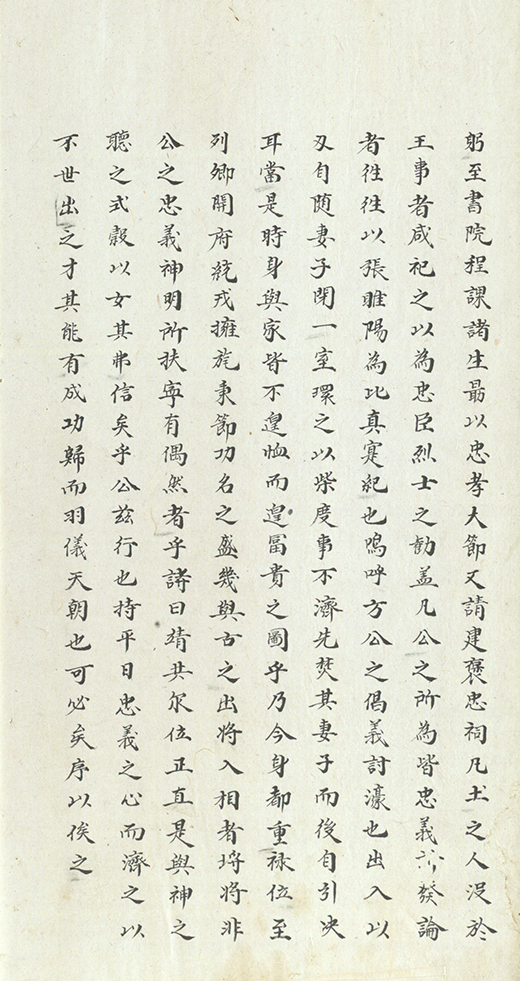 躬至書院程課諸生最以忠孝大節又請建褒忠祠凡土之人沒於
王事者咸祀之以為忠臣烈士之勸盖凡公之所為皆忠義所發論
者徃徃以張睢陽為比真寔紀也嗚呼方公之倡義討濠也出入以
刄自随妻子閉一室環之以柴度事不濟先焚其妻子而後自引决
耳當是時身與家皆不遑恤而遑冨貴之圖乎乃今身都重禄位至
列卿開府綂戎擁旄秉節功名之盛幾與古之出将入相者埒將非
公之忠義神明所扶寧有偶然者乎詩曰靖共尔位正直是與神之
聽之式榖以女其弗信矣乎公兹行也持平日忠義之心而濟之以
不世出之才其能有成功歸而羽儀天朝也可必矣序以俟之